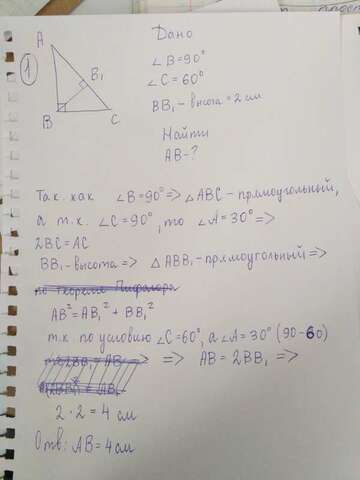 Дано
A
∠B=90°
1
B₁
∠C=60°
B
C
BB₁ - высота = 2 см
Найти
AB-?
Так. как ∠B=90° => △ABC - прямоугольный,
а т.к. ∠C=90°, то ∠A=30° =>
2BC=AC
BB₁ - высота => △ABB₁ - прямоугольный =>
по теореме Пифагора
AB²=AB₁²+BB₁²
т.к. по условию ∠C=60°, а ∠A=30° (90-60)
=> AB=2BB₁ =>
2·2=4 см
Отв: AB=4см